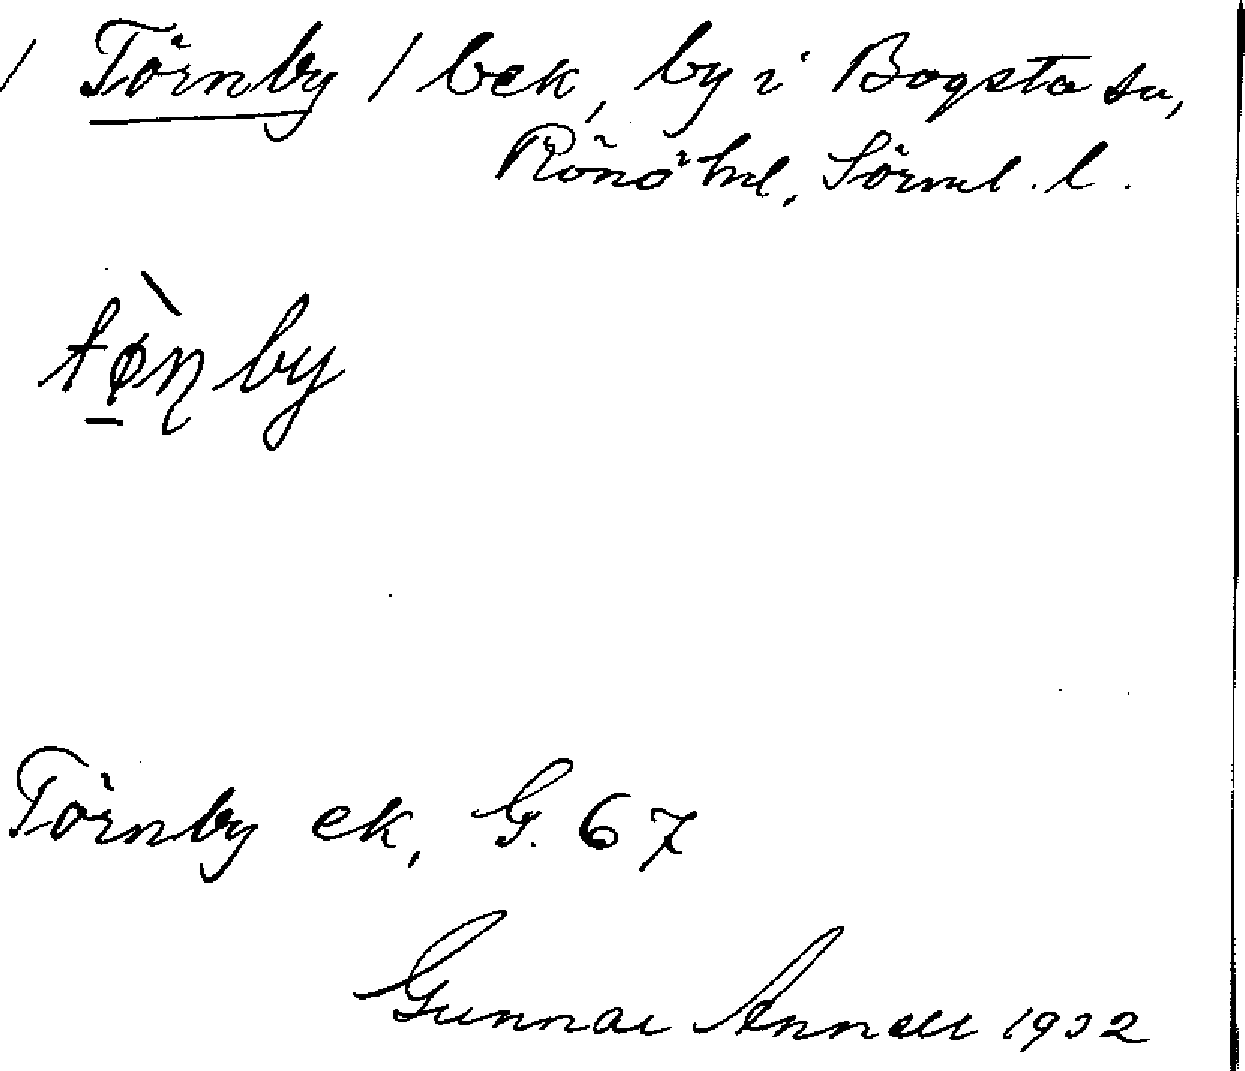 / Törnby / bek, by i Bogsta sn,
Rönö hd. Sörml. l.
tø̀ɳby
Törnby ek, G. 67
Gunnar Annell 1932